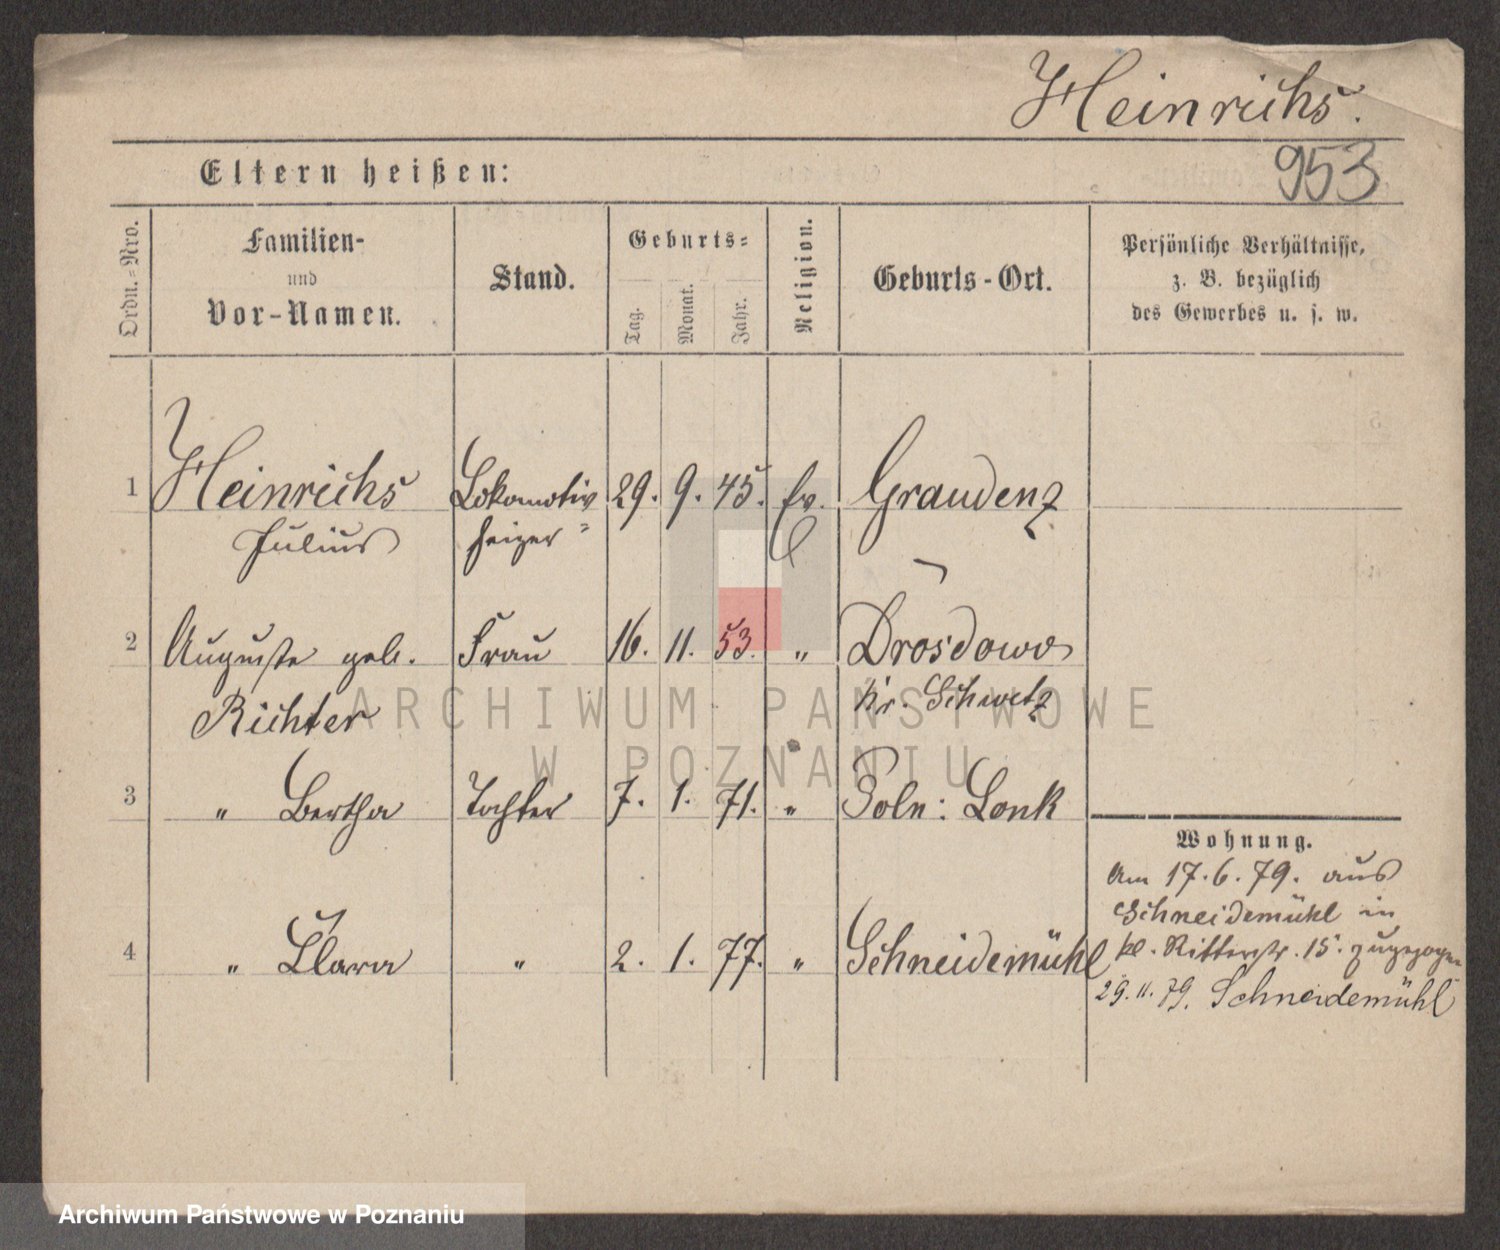 Heinrichs.
953
Eltern heißen:
Ordn.-Nro.
Familien-
und
Vor-Namen.
Stand.
Geburts-
Tag.
Monat.
Jahr.
Religion.
Geburts-Ort.
Persönliche Verhältnisse,
z. B. bezüglich
des Gewerbes u. s. w.
1 Heinrichs Lokomotiv 29. 9. 45. Ev. Graudenz
Julius heizer
2 Auguste geb. Frau 16. 11. 53. " Drosdowo
Richter Kr. Schwetz
ARCHIWUM PAŃSTWOWE
W POZNANIU
3 " Bertha Tochter 7. 1. 71. " Poln: Lonk
Wohnung.
Am 17.6.79. aus
Schneidemühl in
kl. Ritterstr. 15. zugezogen
4 " Clara " 2. 1. 77. " Schneidemühl
29.11.79. Schneidemühl
Archiwum Państwowe w Poznaniu